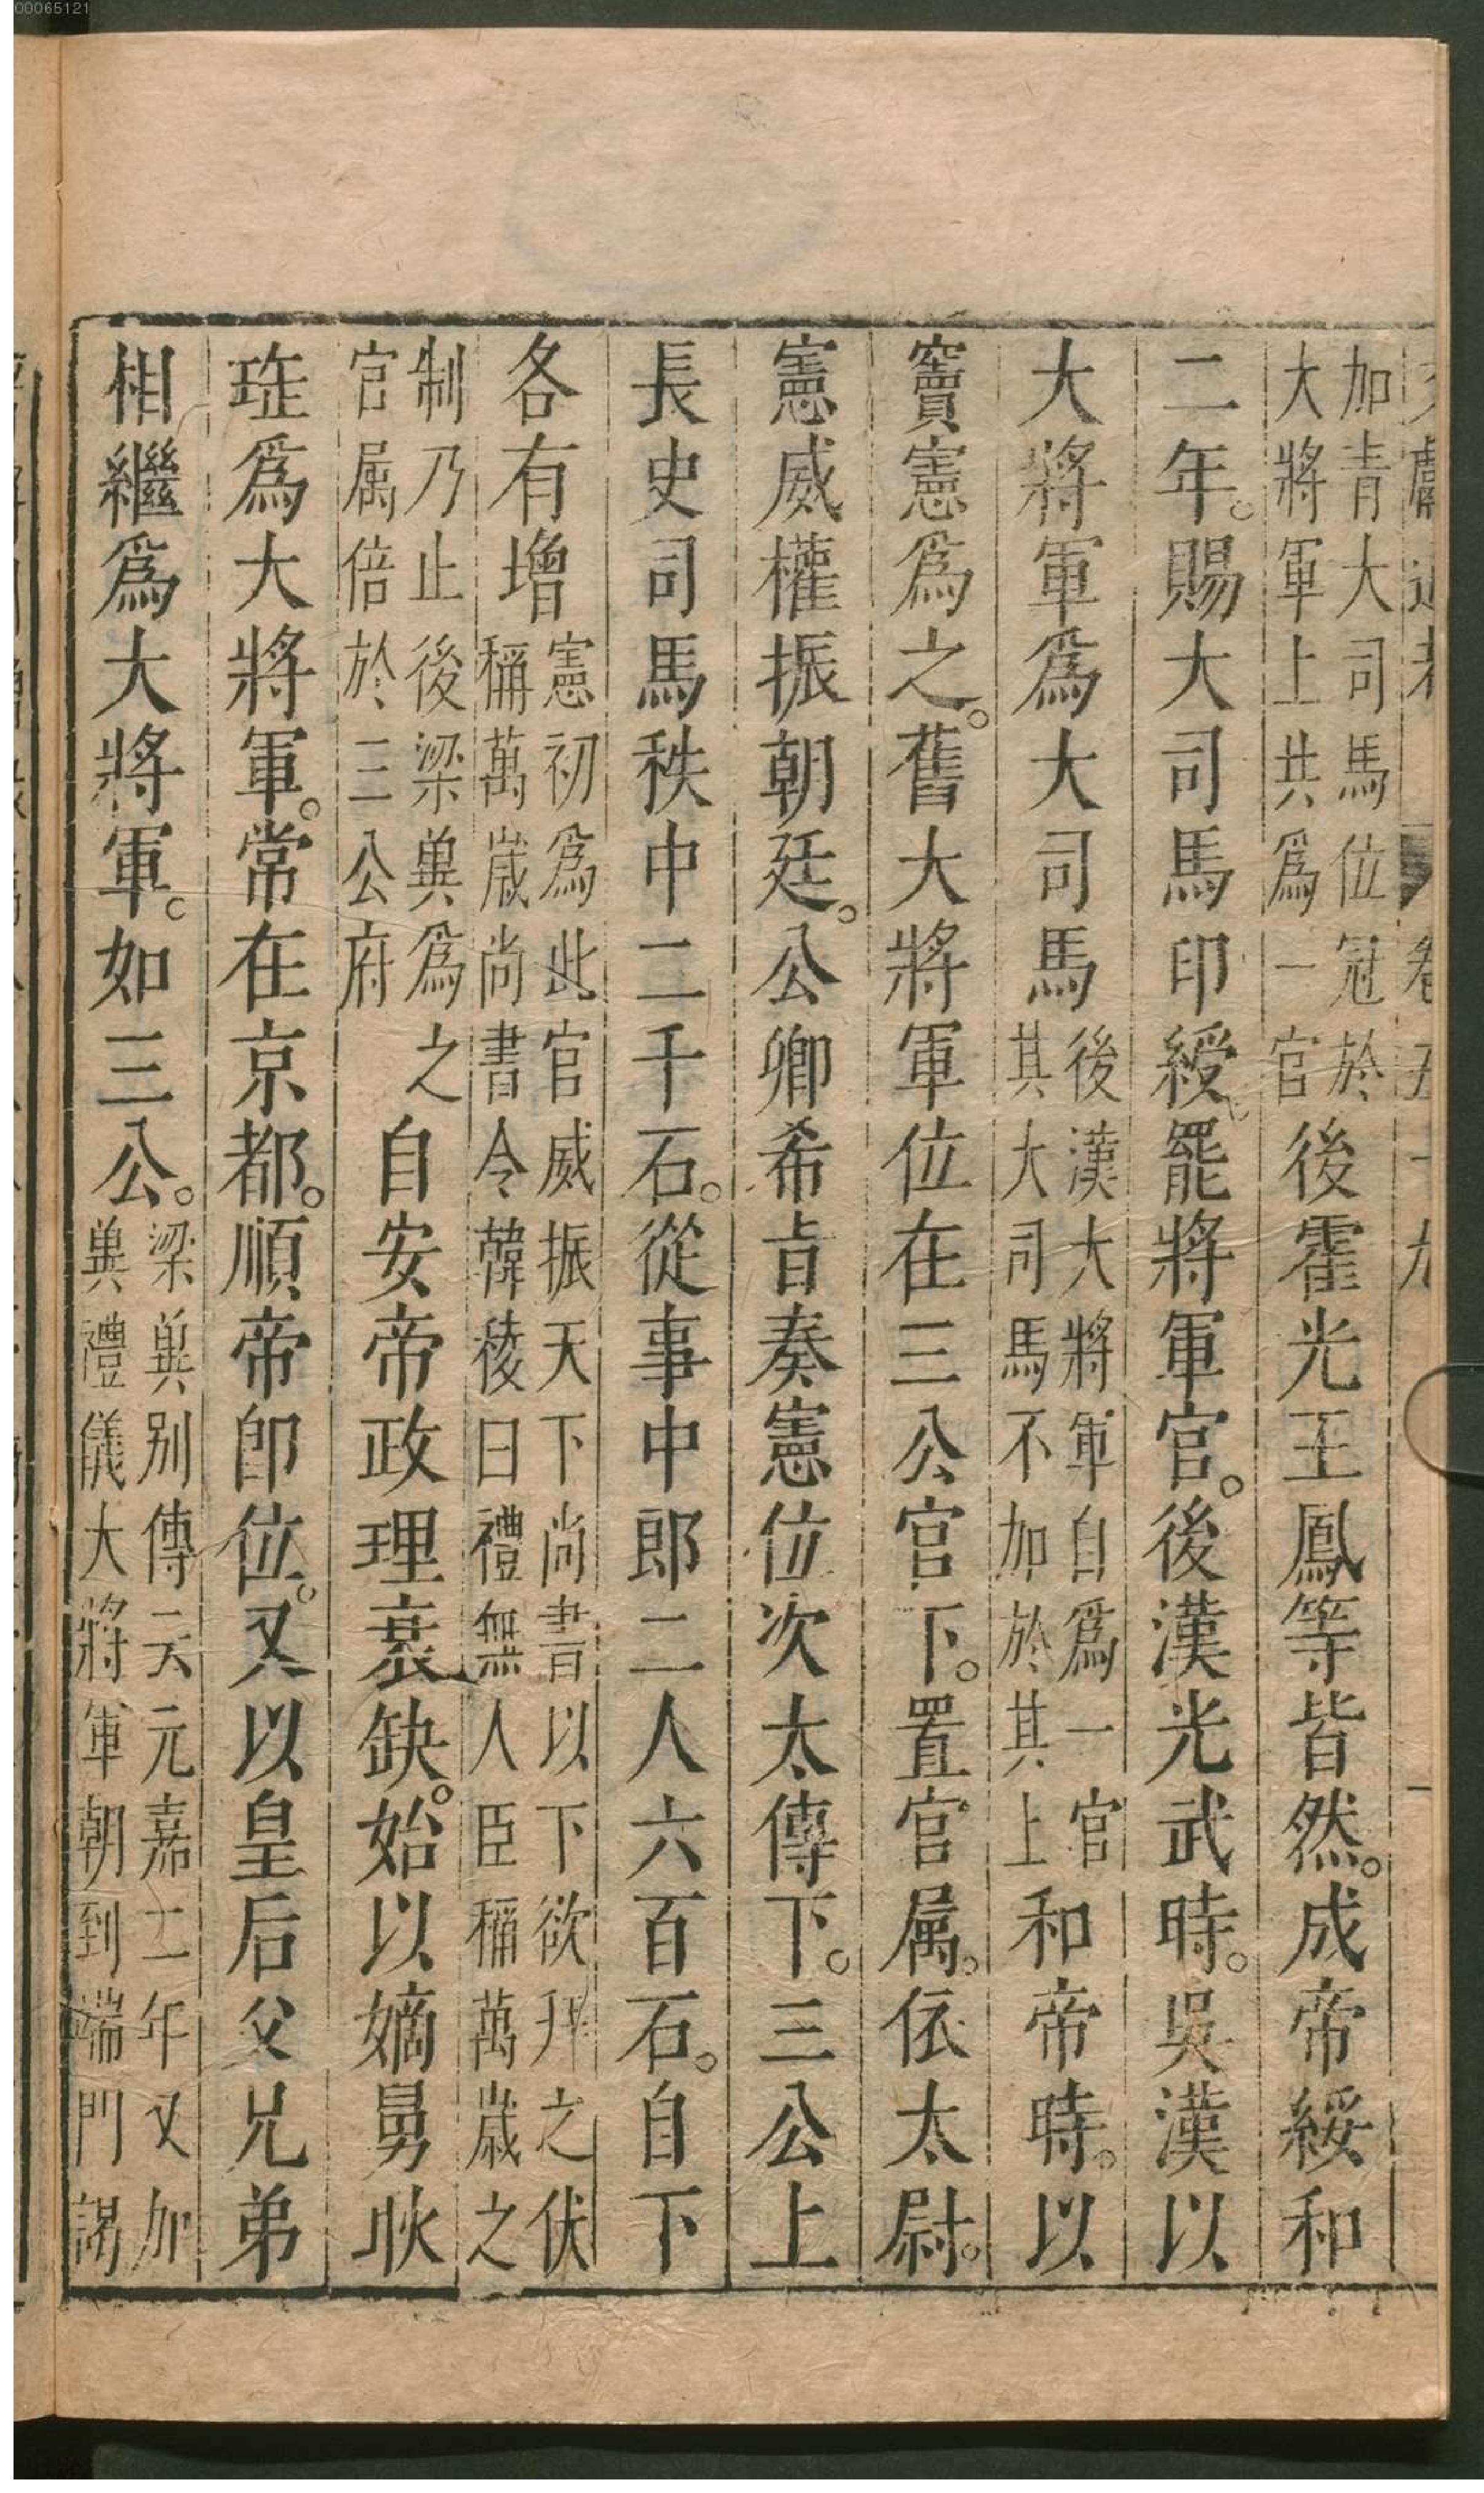 00065121
加青大司馬位冠於
大將軍上共爲一官
後霍光王鳳等皆然。成帝綏和
二年。賜大司馬印綬。罷將軍官。後漢光武時。吳漢以
大將軍爲大司馬
後漢大將軍自爲一官
其大司馬不加於其上
和帝時。以
竇憲爲之。舊大將軍位在三公官下。置官属。依太尉。
憲威權振朝廷。公卿希旨奏憲位次太傅下。三公上
長史司馬秩中二千石。從事中郎二人六百石。自下
各有增
憲初爲此官威振天下尚書以下欲拜之伏
稱萬歲尚書令韓稜曰禮無人臣稱萬歲之
制乃止後梁兾爲之
官属倍於三公府
自安帝政理衰缺。始以嫡舅耿
琟爲大將軍。常在京都。順帝卽位。又以皇后父兄弟
相繼爲大將軍。如三公。
梁兾别傳云元嘉二年又加
兾禮儀大將軍朝到端門謁